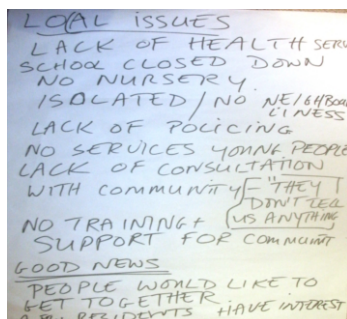 LOCAL ISSUES
LACK OF HEALTH SERV
SCHOOL CLOSED DOWN
NO NURSERY
ISOLATED / NO NEIGHBOUR
LINESS
LACK OF POLICING
NO SERVICES YOUNG PEOPLE
LACK OF CONSULTATION
WITH COMMUNITY - "THEY
DON'T TELL
US ANYTHING
NO TRAINING +
SUPPORT FOR COMMUNIT
GOOD NEWS
PEOPLE WOULD LIKE TO
GET TOGETHER
RESIDENTS HAVE INTEREST